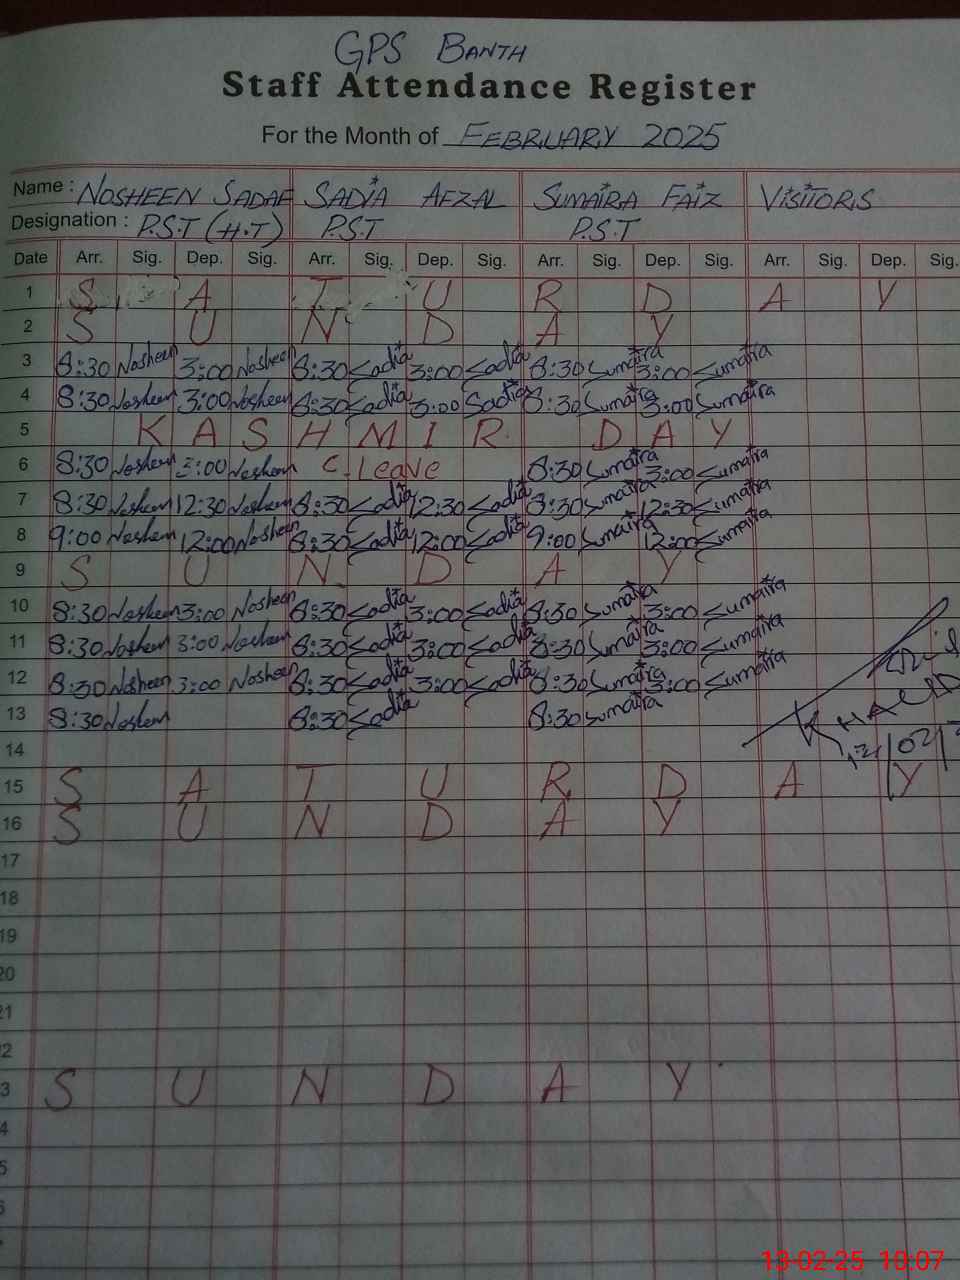 GPS BANTH
Staff Attendance Register
For the Month of FEBRUARY 2025
Name : NOSHEEN SADAF SADIA AFZAL SUMAIRA FAIZ VISITORS
Designation : P.S.T (H.T) P.S.T P.S.T
Date Arr. Sig. Dep. Sig. Arr. Sig. Dep. Sig. Arr. Sig. Dep. Sig. Arr. Sig. Dep. Sig.
1 S A T U R D A Y
2 S U N D A Y
3 8:30 Nosheen 3:00 Nosheen 8:30 Sadia 3:00 Sadia 8:30 Sumaira 3:00 Sumaira
4 8:30 Nosheen 3:00 Nosheen 8:30 Sadia 3:00 Sadia 8:30 Sumaira 3:00 Sumaira
5 K A S H M I R D A Y
6 8:30 Nosheen 3:00 Nosheen C. Leave 8:30 Sumaira 3:00 Sumaira
7 8:30 Nosheen 12:30 Nosheen 8:30 Sadia 12:30 Sadia 8:30 Sumaira 12:30 Sumaira
8 9:00 Nosheen 12:00 Nosheen 8:30 Sadia 12:00 Sadia 9:00 Sumaira 12:00 Sumaira
9 S U N D A Y
10 8:30 Nosheen 3:00 Nosheen 8:30 Sadia 3:00 Sadia 8:30 Sumaira 3:00 Sumaira
11 8:30 Nosheen 3:00 Nosheen 8:30 Sadia 3:00 Sadia 8:30 Sumaira 3:00 Sumaira
12 8:30 Nosheen 3:00 Nosheen 8:30 Sadia 3:00 Sadia 8:30 Sumaira 3:00 Sumaira
13 8:30 Nosheen 8:30 Sadia 8:30 Sumaira KHALID
14
15 S A T U R D A Y
16 S U N D A Y
17
18
19
20
21
2
3 S U N D A Y
4
5
6
13-02-25 10:07